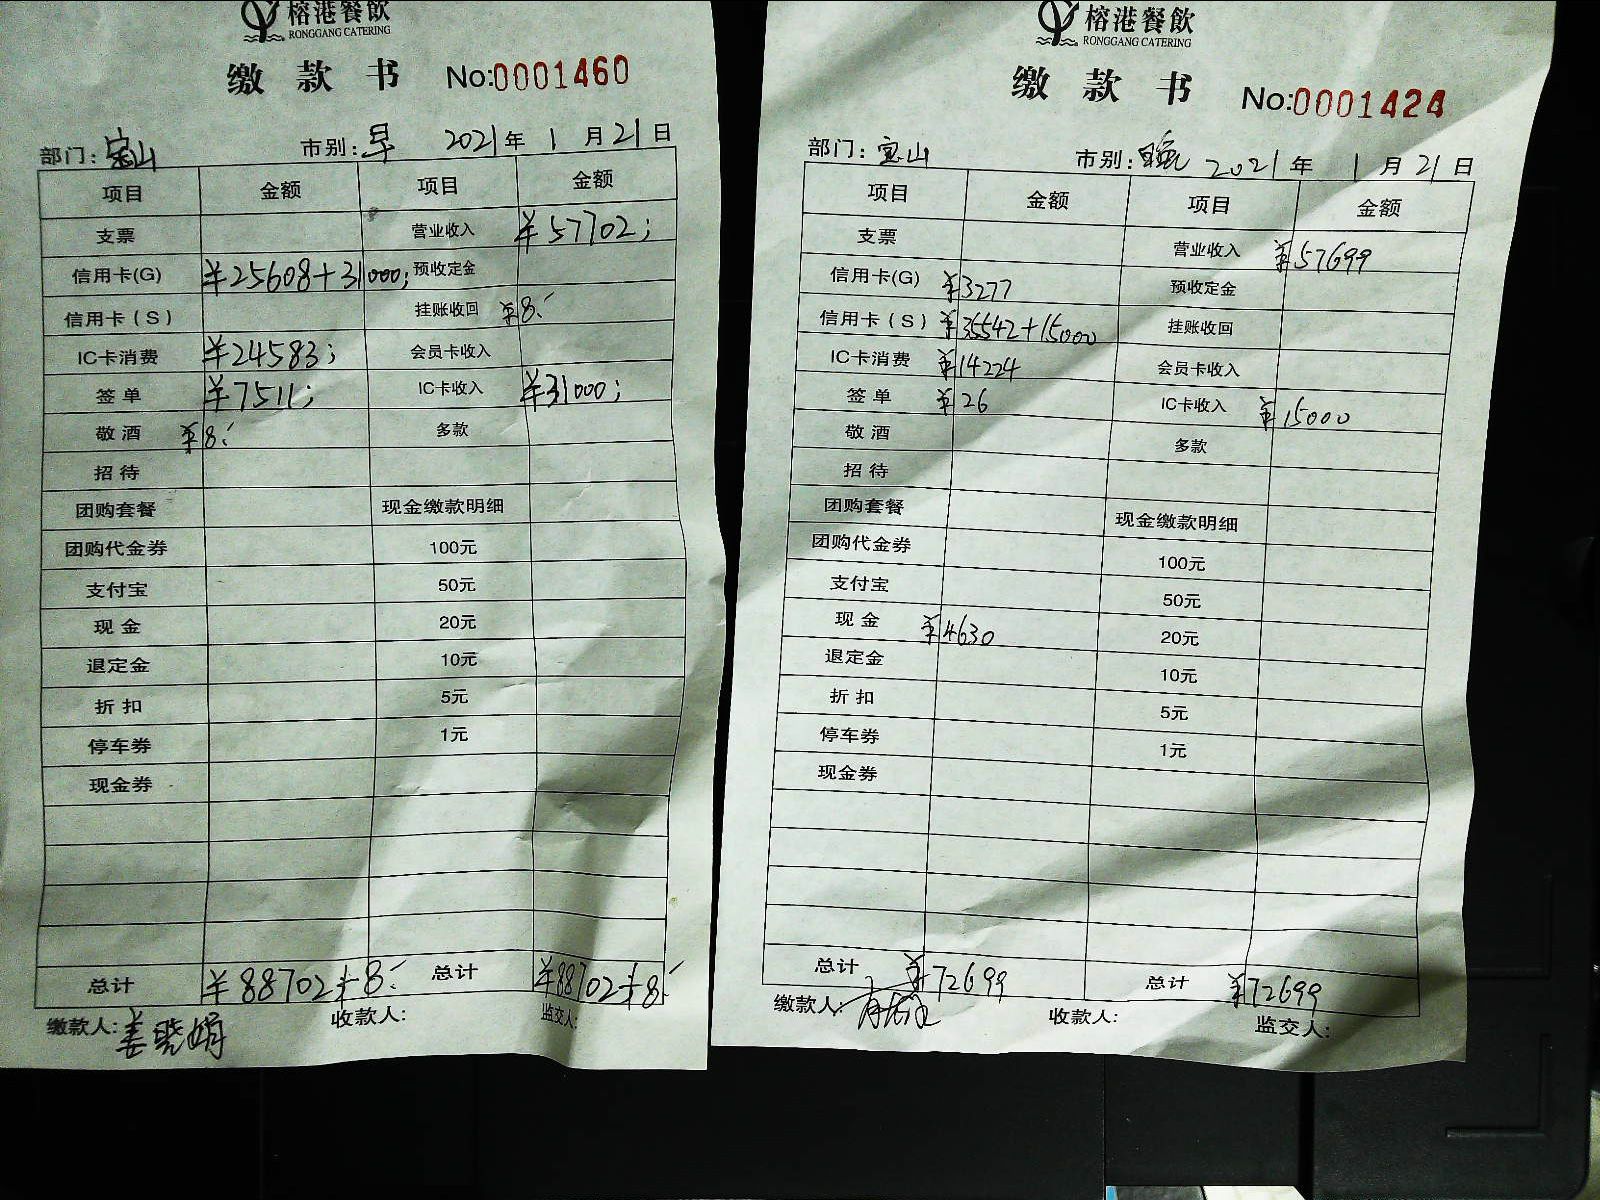 榕港餐飲
RONGGANG CATERING
缴款书 No:0001460
部门:宝山 市别:早 2021年1月21日
项目 金额 项目 金额
支票 营业收入 ¥57702;
信用卡(G) ¥25608+31000; 预收定金
信用卡(S) 挂账收回 ¥8.-
IC卡消费 ¥24583; 会员卡收入
签单 ¥7511; IC卡收入 ¥31000;
敬酒 ¥8.- 多款
招待
团购套餐 现金缴款明细
团购代金券 100元
支付宝 50元
现金 20元
退定金 10元
折扣 5元
停车券 1元
现金券
总计 ¥88702+8.- 总计 ¥88702+8.-
缴款人:姜晓娟 收款人: 监交人:
榕港餐飲
RONGGANG CATERING
缴款书 No:0001424
部门:宝山 市别:晚 2021年1月21日
项目 金额 项目 金额
支票 营业收入 ¥57699
信用卡(G) ¥3277 预收定金
信用卡(S) ¥35542+15000 挂账收回
IC卡消费 ¥14224 会员卡收入
签单 ¥26 IC卡收入 ¥15000
敬酒 多款
招待
团购套餐 现金缴款明细
团购代金券 100元
支付宝 50元
现金 ¥4630 20元
退定金 10元
折扣 5元
停车券 1元
现金券
总计 ¥72699 总计 ¥72699
缴款人: 收款人: 监交人: